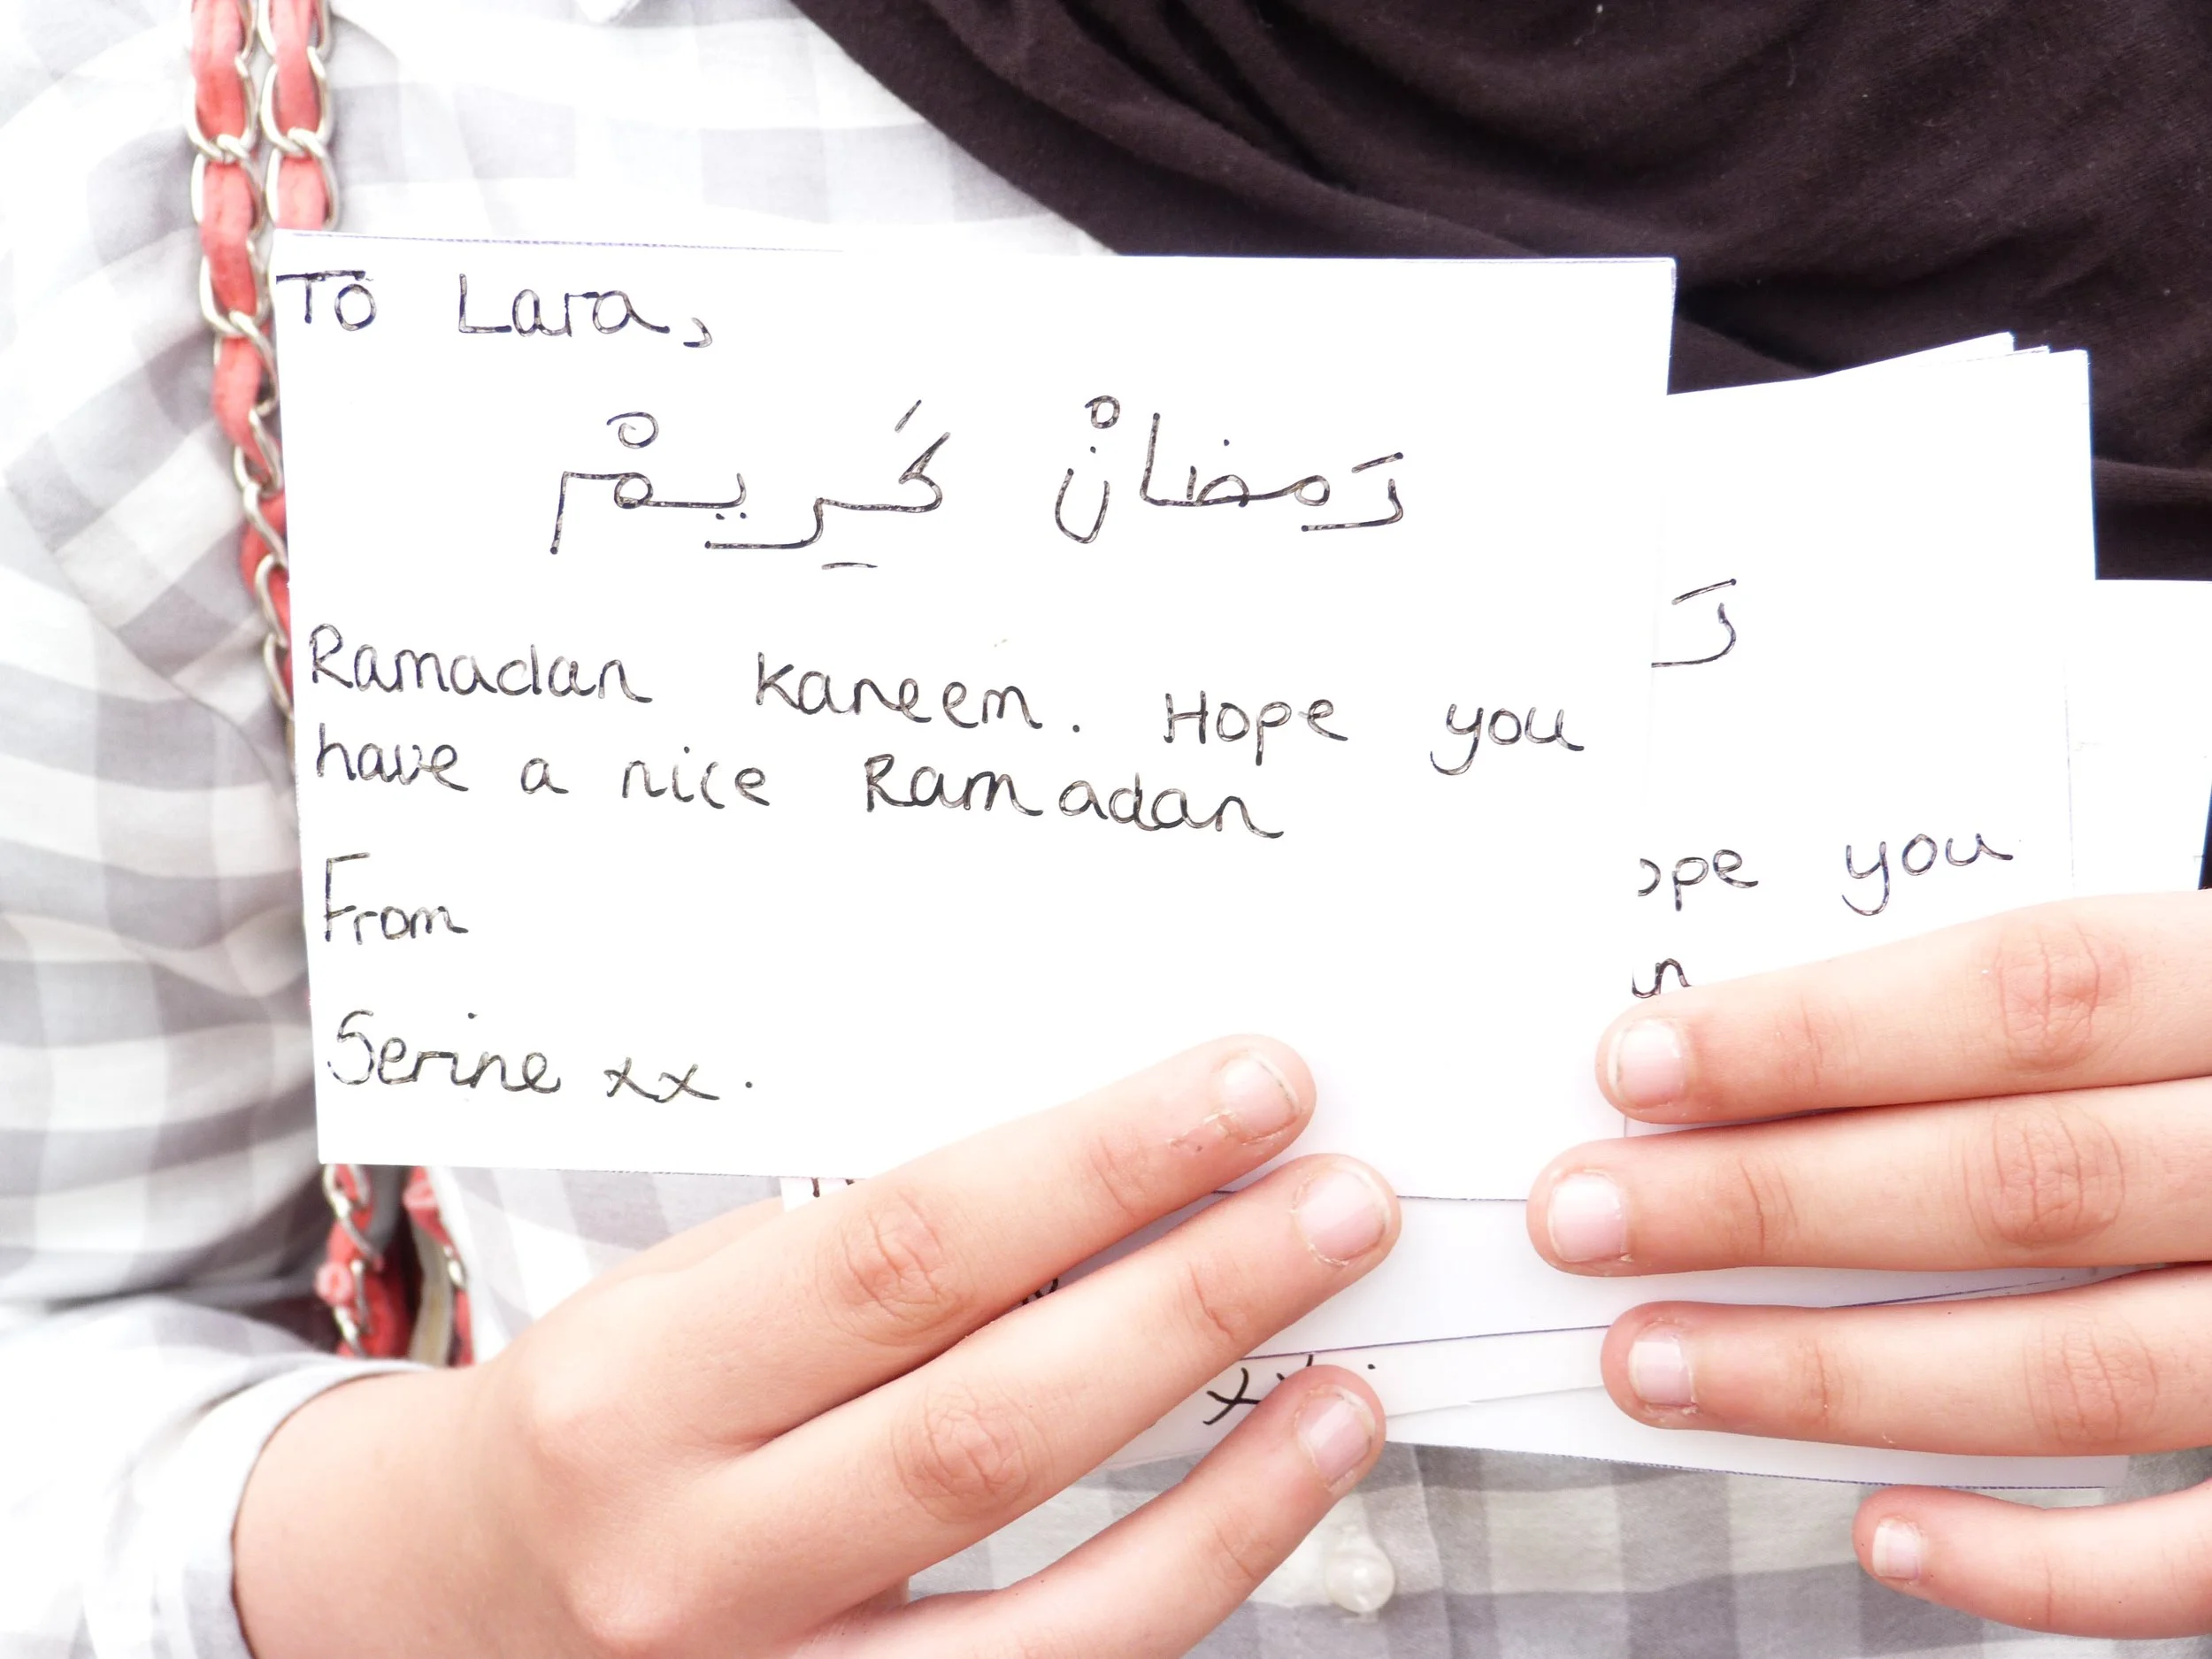 To Lara,
رَمضانْ كَرِيمْ
Ramadan Kareem. Hope you
have a nice Ramadan
From
Serine xx.
رَ
ope you
n
xx.